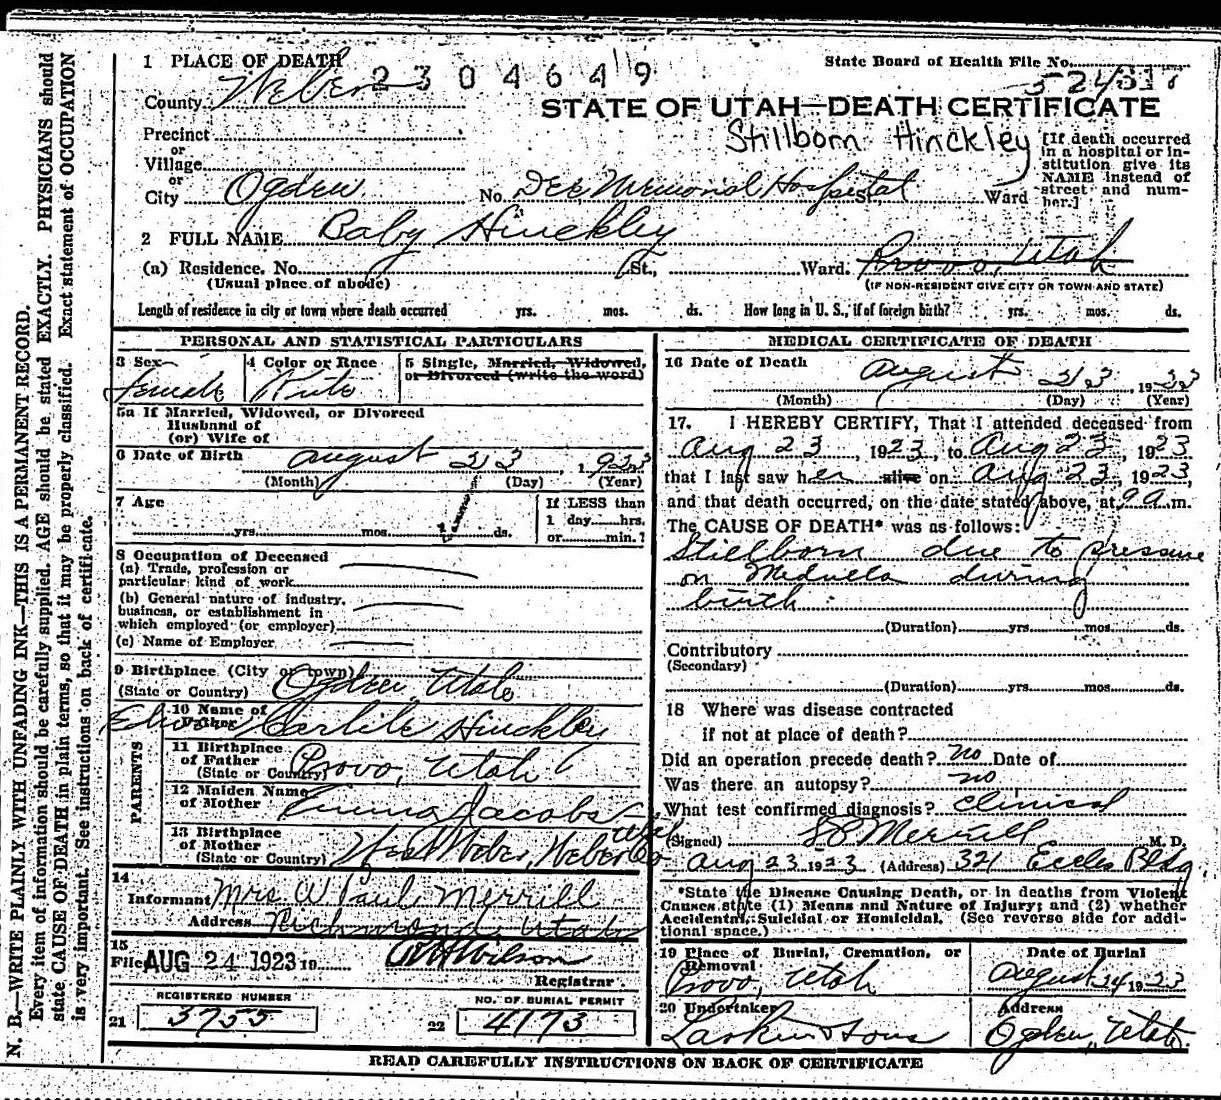 1 PLACE OF DEATH
2304649
State Board of Health File No.
County Weber
STATE OF UTAH—DEATH CERTIFICATE
Stillborn Hinckley
Precinct
or
Village
or
City Ogden No. Dee Memorial Hospital St., Ward
[If death occurred
in a hospital or in-
stitution give its
NAME instead of
street and num-
ber.]
2 FULL NAME Baby Hinckley
(a) Residence. No. St., Ward. Provo, Utah
(Usual place of abode) (IF NON-RESIDENT GIVE CITY OR TOWN AND STATE)
Length of residence in city or town where death occurred yrs. mos. ds. How long in U. S., if of foreign birth? yrs. mos. ds.
PERSONAL AND STATISTICAL PARTICULARS
3 Sex
Female
4 Color or Race
5 Single, Married, Widowed,
or Divorced (write the word)
5a If Married, Widowed, or Divorced
Husband of
(or) Wife of
6 Date of Birth August 23, 1923
(Month) (Day) (Year)
7 Age
yrs. mos. ds.
If LESS than
1 day hrs.
or min.?
8 Occupation of Deceased
(a) Trade, profession or
particular kind of work
(b) General nature of industry,
business, or establishment in
which employed (or employer)
(c) Name of Employer
9 Birthplace (City or town)
(State or Country) Ogden, Utah
PARENTS
10 Name of
Father Edwin Carlile Hinckley
11 Birthplace
of Father
(State or Country) Provo, Utah
12 Maiden Name
of Mother Emma Jacobs
13 Birthplace
of Mother
(State or Country) West Weber, Weber Co Utah
14
Informant Mrs W Paul Merrill
Address Richmond, Utah
15
File AUG 24 1923 19 Wilson
Registrar
REGISTERED NUMBER
21 3755
NO. OF BURIAL PERMIT
22 4173
MEDICAL CERTIFICATE OF DEATH
16 Date of Death
August 23, 1923
(Month) (Day) (Year)
17. I HEREBY CERTIFY, That I attended deceased from
Aug 23, 1923, to Aug 23, 1923
that I last saw her alive on Aug 23, 1923,
and that death occurred, on the date stated above, at 9 a.m.
The CAUSE OF DEATH* was as follows:
Stillborn due to pressure
on Medulla during
birth.
(Duration) yrs. mos. ds.
Contributory
(Secondary)
(Duration) yrs. mos. ds.
18 Where was disease contracted
if not at place of death?
Did an operation precede death? no Date of
Was there an autopsy? no
What test confirmed diagnosis? Clinical
(Signed) Merrill M. D.
Aug 23 1923 (Address) 321 Eccles Bldg
*State the Disease Causing Death, or in deaths from Violent
Causes state (1) Means and Nature of Injury; and (2) whether
Accidental, Suicidal or Homicidal. (See reverse side for addi-
tional space.)
19 Place of Burial, Cremation, or
Removal
Provo, Utah
Date of Burial
August 24 1923
20 Undertaker
Larkin & Sons
Address
Ogden, Utah.
READ CAREFULLY INSTRUCTIONS ON BACK OF CERTIFICATE
N. B.—WRITE PLAINLY WITH UNFADING INK—THIS IS A PERMANENT RECORD.
Every item of information should be carefully supplied. AGE should be stated EXACTLY. PHYSICIANS should
state CAUSE OF DEATH in plain terms, so that it may be properly classified. Exact statement of OCCUPATION
is very important. See instructions on back of certificate.